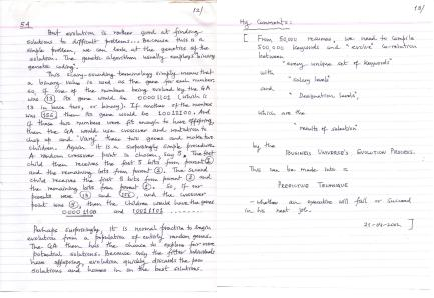 12/
54.
But evolution is rather good at finding
solutions to difficult problems... Because this is a
simple problem, we can look at the genetics of the
solution. The genetic algorithm usually employs binary
genetic coding.
This scary-sounding terminology simply means that
a binary value is used as the gene for each number.
so, if one of the numbers being evolved by the GA
was 13 its gene would be 00001101 (which is
13 in base two, or binary). If another of the numbers
was 156 then its gene would be 10011100. And
if these two numbers were fit enough to have offspring,
then the GA would use crossover and mutation to
chop up and 'vary' these two genes and make two
children. Again it is a surprisingly simple procedure.
A random crossover point is chosen, say 5. The first
child then receives the first 5 bits from parent 1
and the remaining bits from parent 2. The second
child receives the first 5 bits from parent 2 and
the remaining bits from parent 1. So, if our
parents were 13 and 156, and the crossover
point was 5, then the children would have the genes
00001100 and 10011101 .......
Perhaps surprisingly, it is normal practice to begin
evolution from a population of entirely random genes.
The GA then has the chance to explore far more
potential solutions. Because only the fitter individuals
have offspring, evolution quickly discards the poor
solutions and homes in on the best solutions.
13/
My Comments:
[ From 50,000 resumes, we need to compile
500,000 keywords and "evolve" co-relation
between
"every unique set of keywords"
with
"salary levels"
and
"Designation levels",
which are the
results of selection
by the
BUSINESS UNIVERSE'S EVOLUTION PROCESS.
This can be made into a
PREDICTIVE TECHNIQUE
- whether an executive will fail or succeed
in his next job.
]